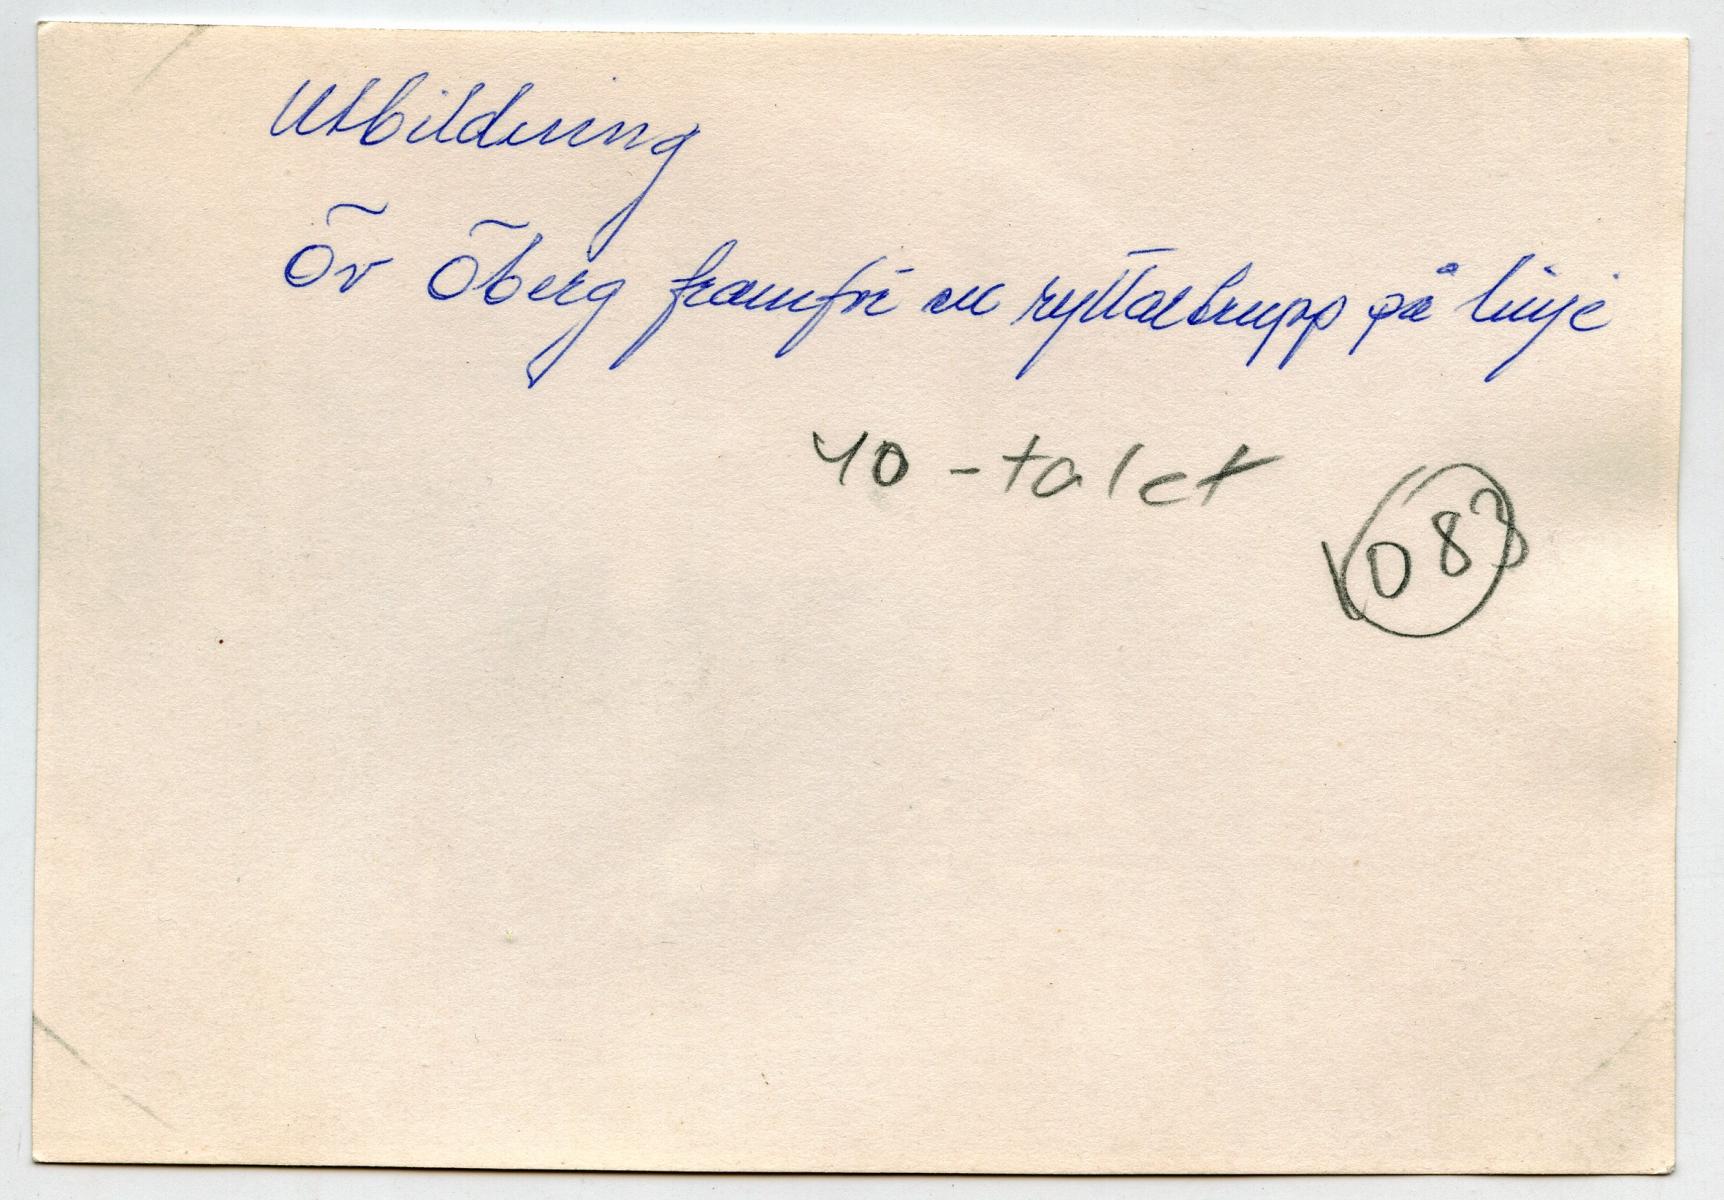 Utbildning
Öv Öberg framför en ryttartrupp på linje
40-talet
083